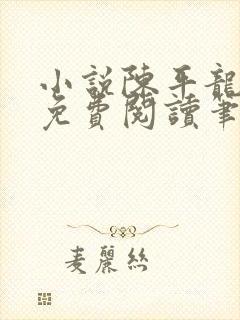 小説陳平龍
免費閱讀筆
麦麗絲